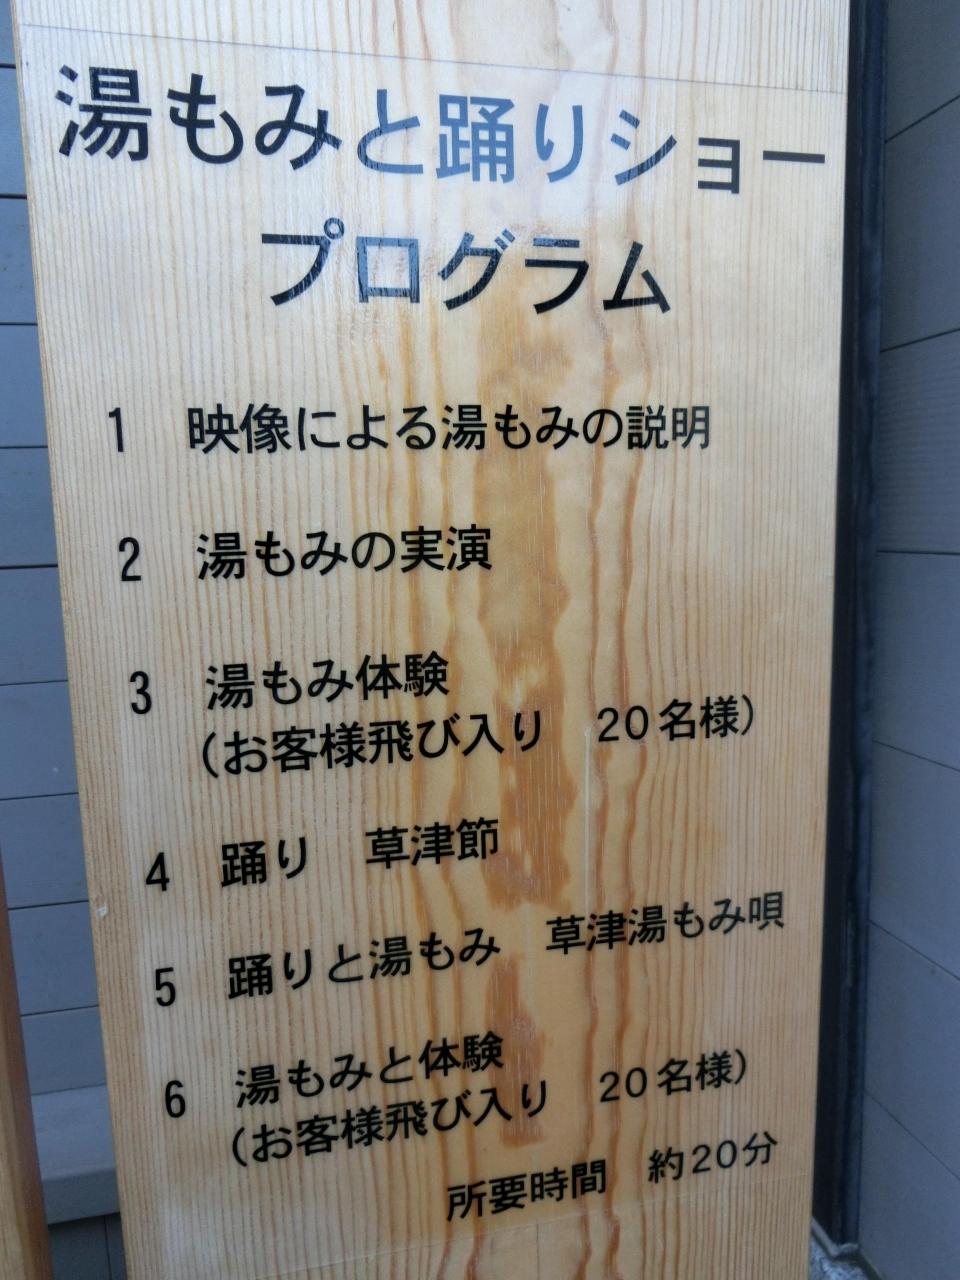 湯もみと踊りショー
プログラム
1　映像による湯もみの説明
2　湯もみの実演
3　湯もみ体験
（お客様飛び入り　20名様）
4　踊り　草津節
5　踊りと湯もみ　草津湯もみ唄
6　湯もみと体験
（お客様飛び入り　20名様）
所要時間　約20分